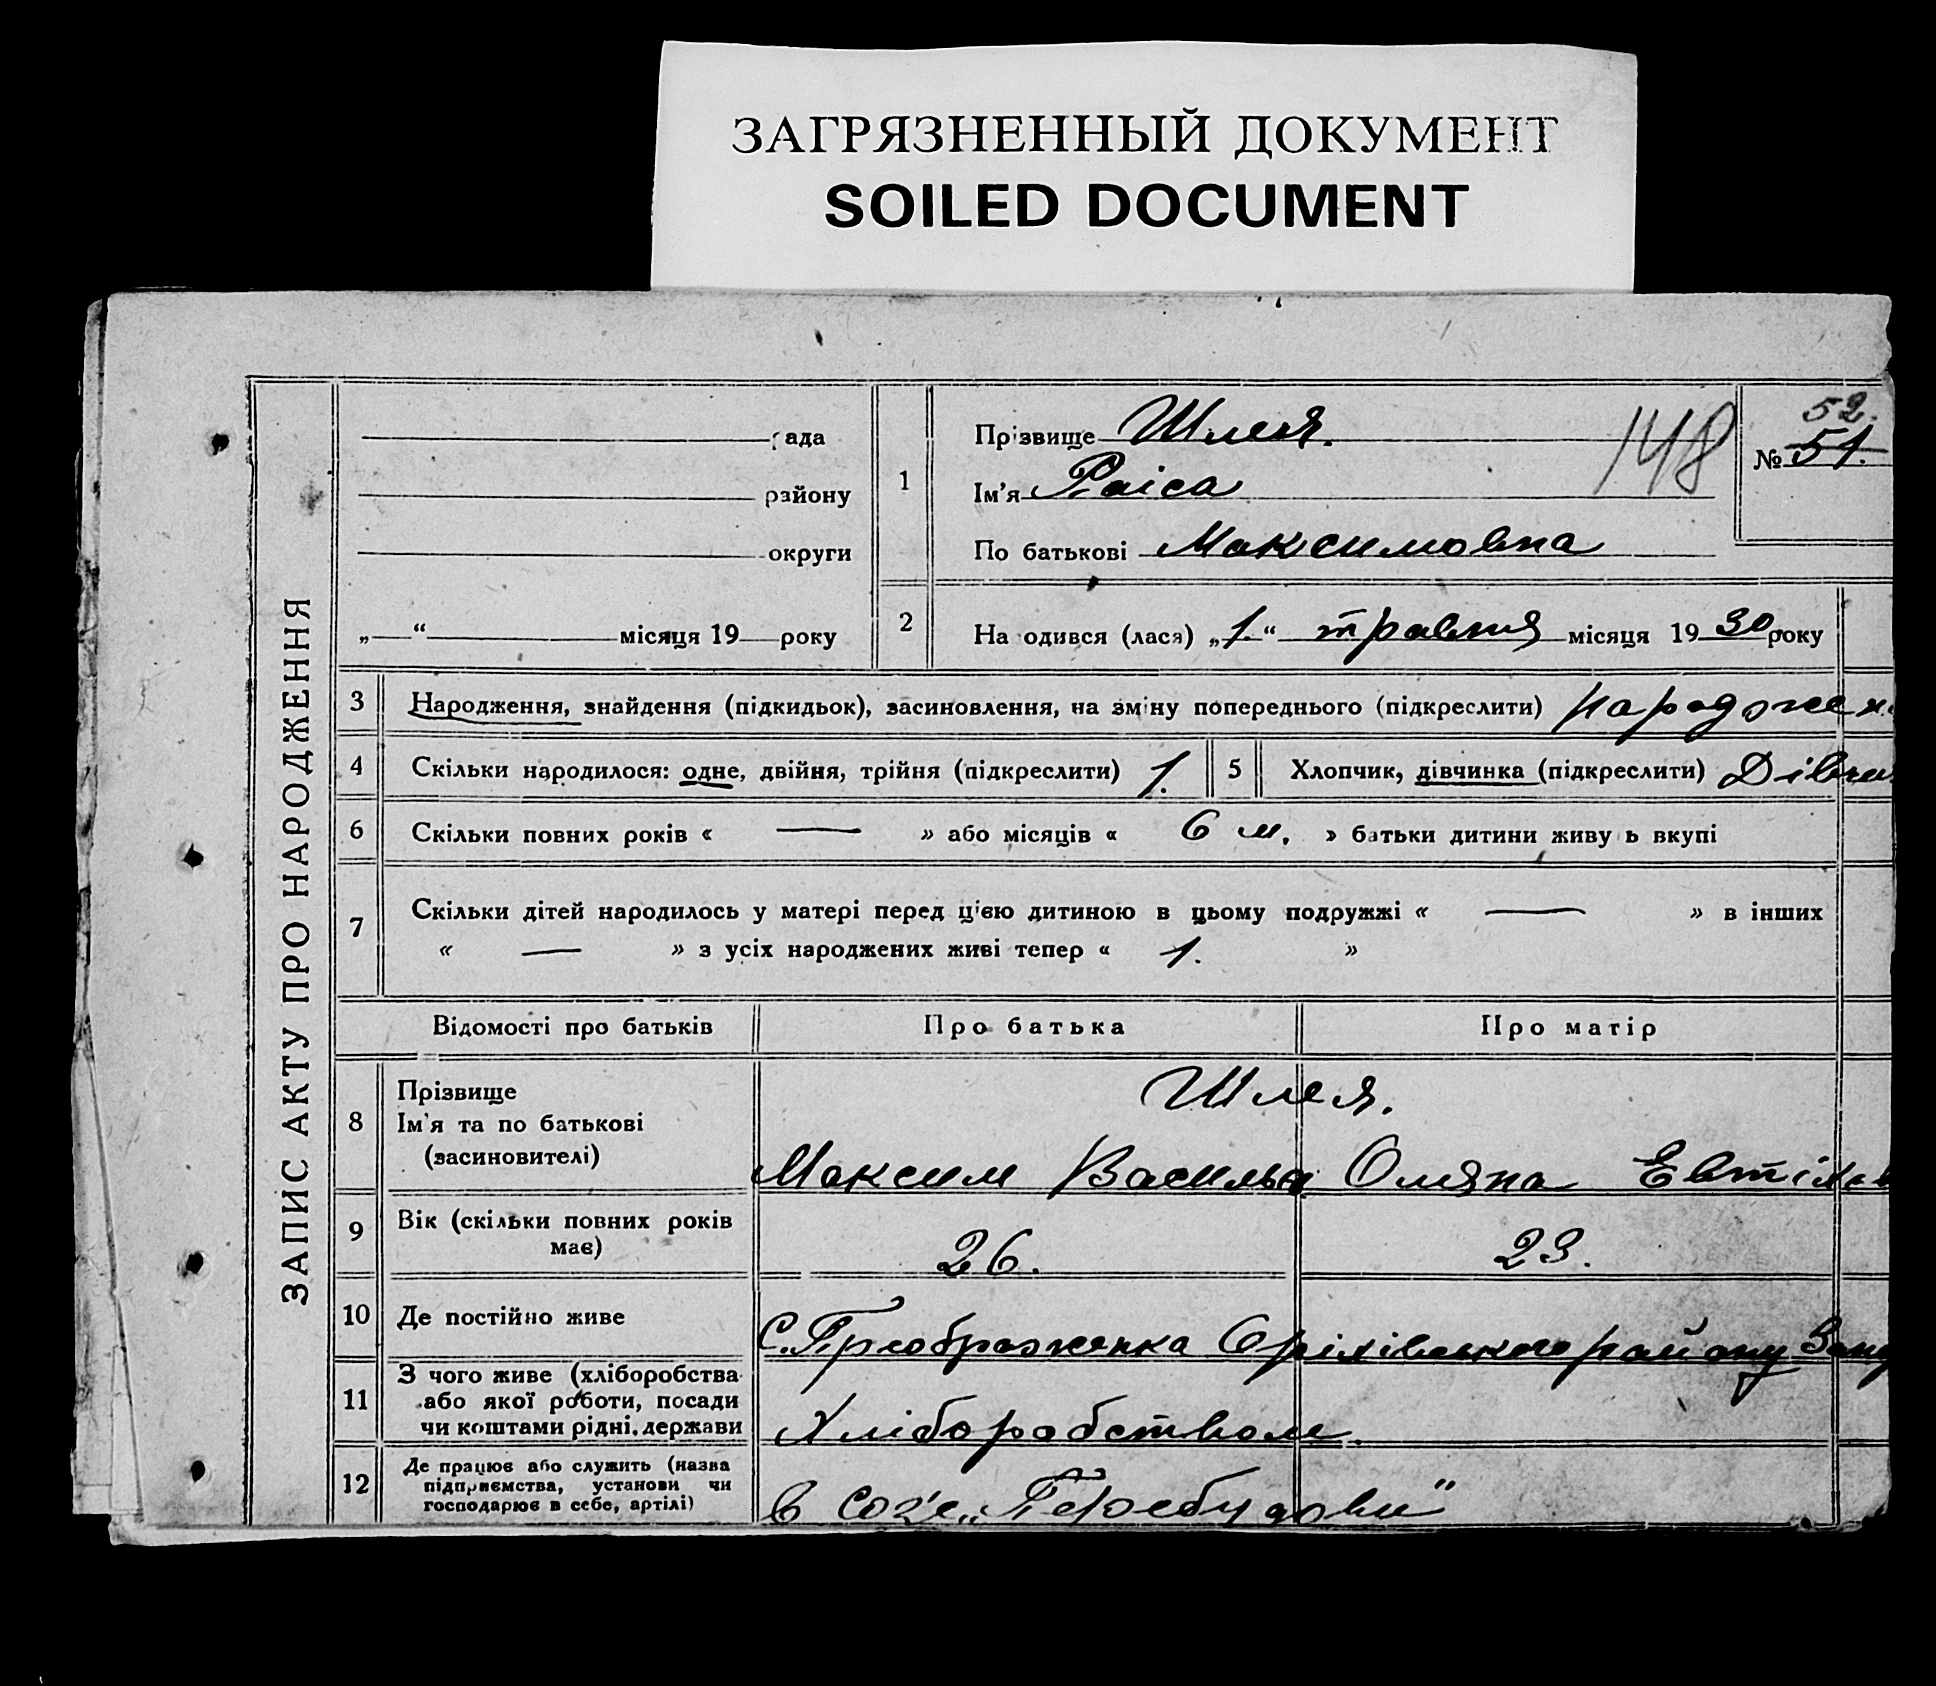 ЗАГРЯЗНЕННЫЙ ДОКУМЕНТ
SOILED DOCUMENT
ЗАПИС АКТУ ПРО НАРОДЖЕННЯ
рада
району
округи
„ “ місяця 19 року
1
Прізвище Шлея.
Ім'я Раіса
По батькові Максимовна
148
52.
№ 51.
2
На одився (лася) „1.“ травня місяця 1930 року
3 Народження, знайдення (підкидьок), засиновлення, на зміну попереднього (підкреслити) народжен
4 Скільки народилося: одне, двійня, трійня (підкреслити) 1. 5 Хлопчик, дівчинка (підкреслити) Дівчи
6 Скільки повних років « — » або місяців « 6 м. » батьки дитини живу ь вкупі
7 Скільки дітей народилось у матері перед цією дитиною в цьому подружжі « — » в інших
« — » з усіх народжених живі тепер « 1. »
Відомості про батьків Про батька Про матір
8
Прізвище
Ім'я та по батькові
(засиновителі)
Шлея.
Максим Васильо Оляна Евтіхів
9
Вік (скільки повних років
має)
26. 23.
10 Де постійно живе
С. Преображенка Оріхівського району Запо
11
З чого живе (хліборобства
або якої роботи, посади
чи коштами рідні, держави
Хліборобством.
12
Де працює або служить (назва
підприємства, установи чи
господарює в себе, артілі)
в созі „Перебудови“